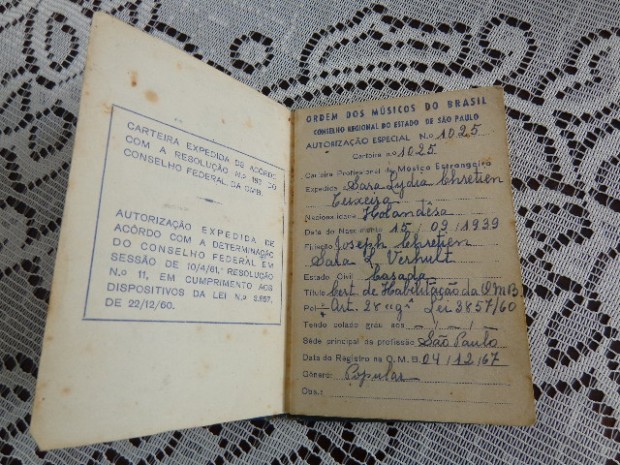 CARTEIRA EXPEDIDA DE ACÔRDO
COM A RESOLUÇÃO N.º 182 DO
CONSELHO FEDERAL DA OMB.
AUTORIZAÇÃO EXPEDIDA DE
ACÔRDO COM A DETERMINAÇÃO
DO CONSELHO FEDERAL EM
SESSÃO DE 10/4/61, RESOLUÇÃO
N.º 11, EM CUMPRIMENTO AOS
DISPOSITIVOS DA LEI N.º 3.857,
DE 22/12/60.
ORDEM DOS MÚSICOS DO BRASIL
CONSELHO REGIONAL DO ESTADO DE SÃO PAULO
AUTORIZAÇÃO ESPECIAL N.º 1025
Carteira n.º 1025
Carteira Profissional de Músico Estrangeiro
Expedida Sara Lydia Chretien
Teixeira
Nacionalidade Holandêsa
Data do Nascimento 15/09/1939
Filiação Joseph Chretien
Sara L. Verhult
Estado Civil Casada
Título Cert. de Habilitação da O.M.B.
Pel Art. 28 "g" Lei 3857/60
Tendo colado grau aos -/-/-
Séde principal da profissão São Paulo
Data do Registro na O.M.B. 04/12/67
Gênero: Popular
Obs.: